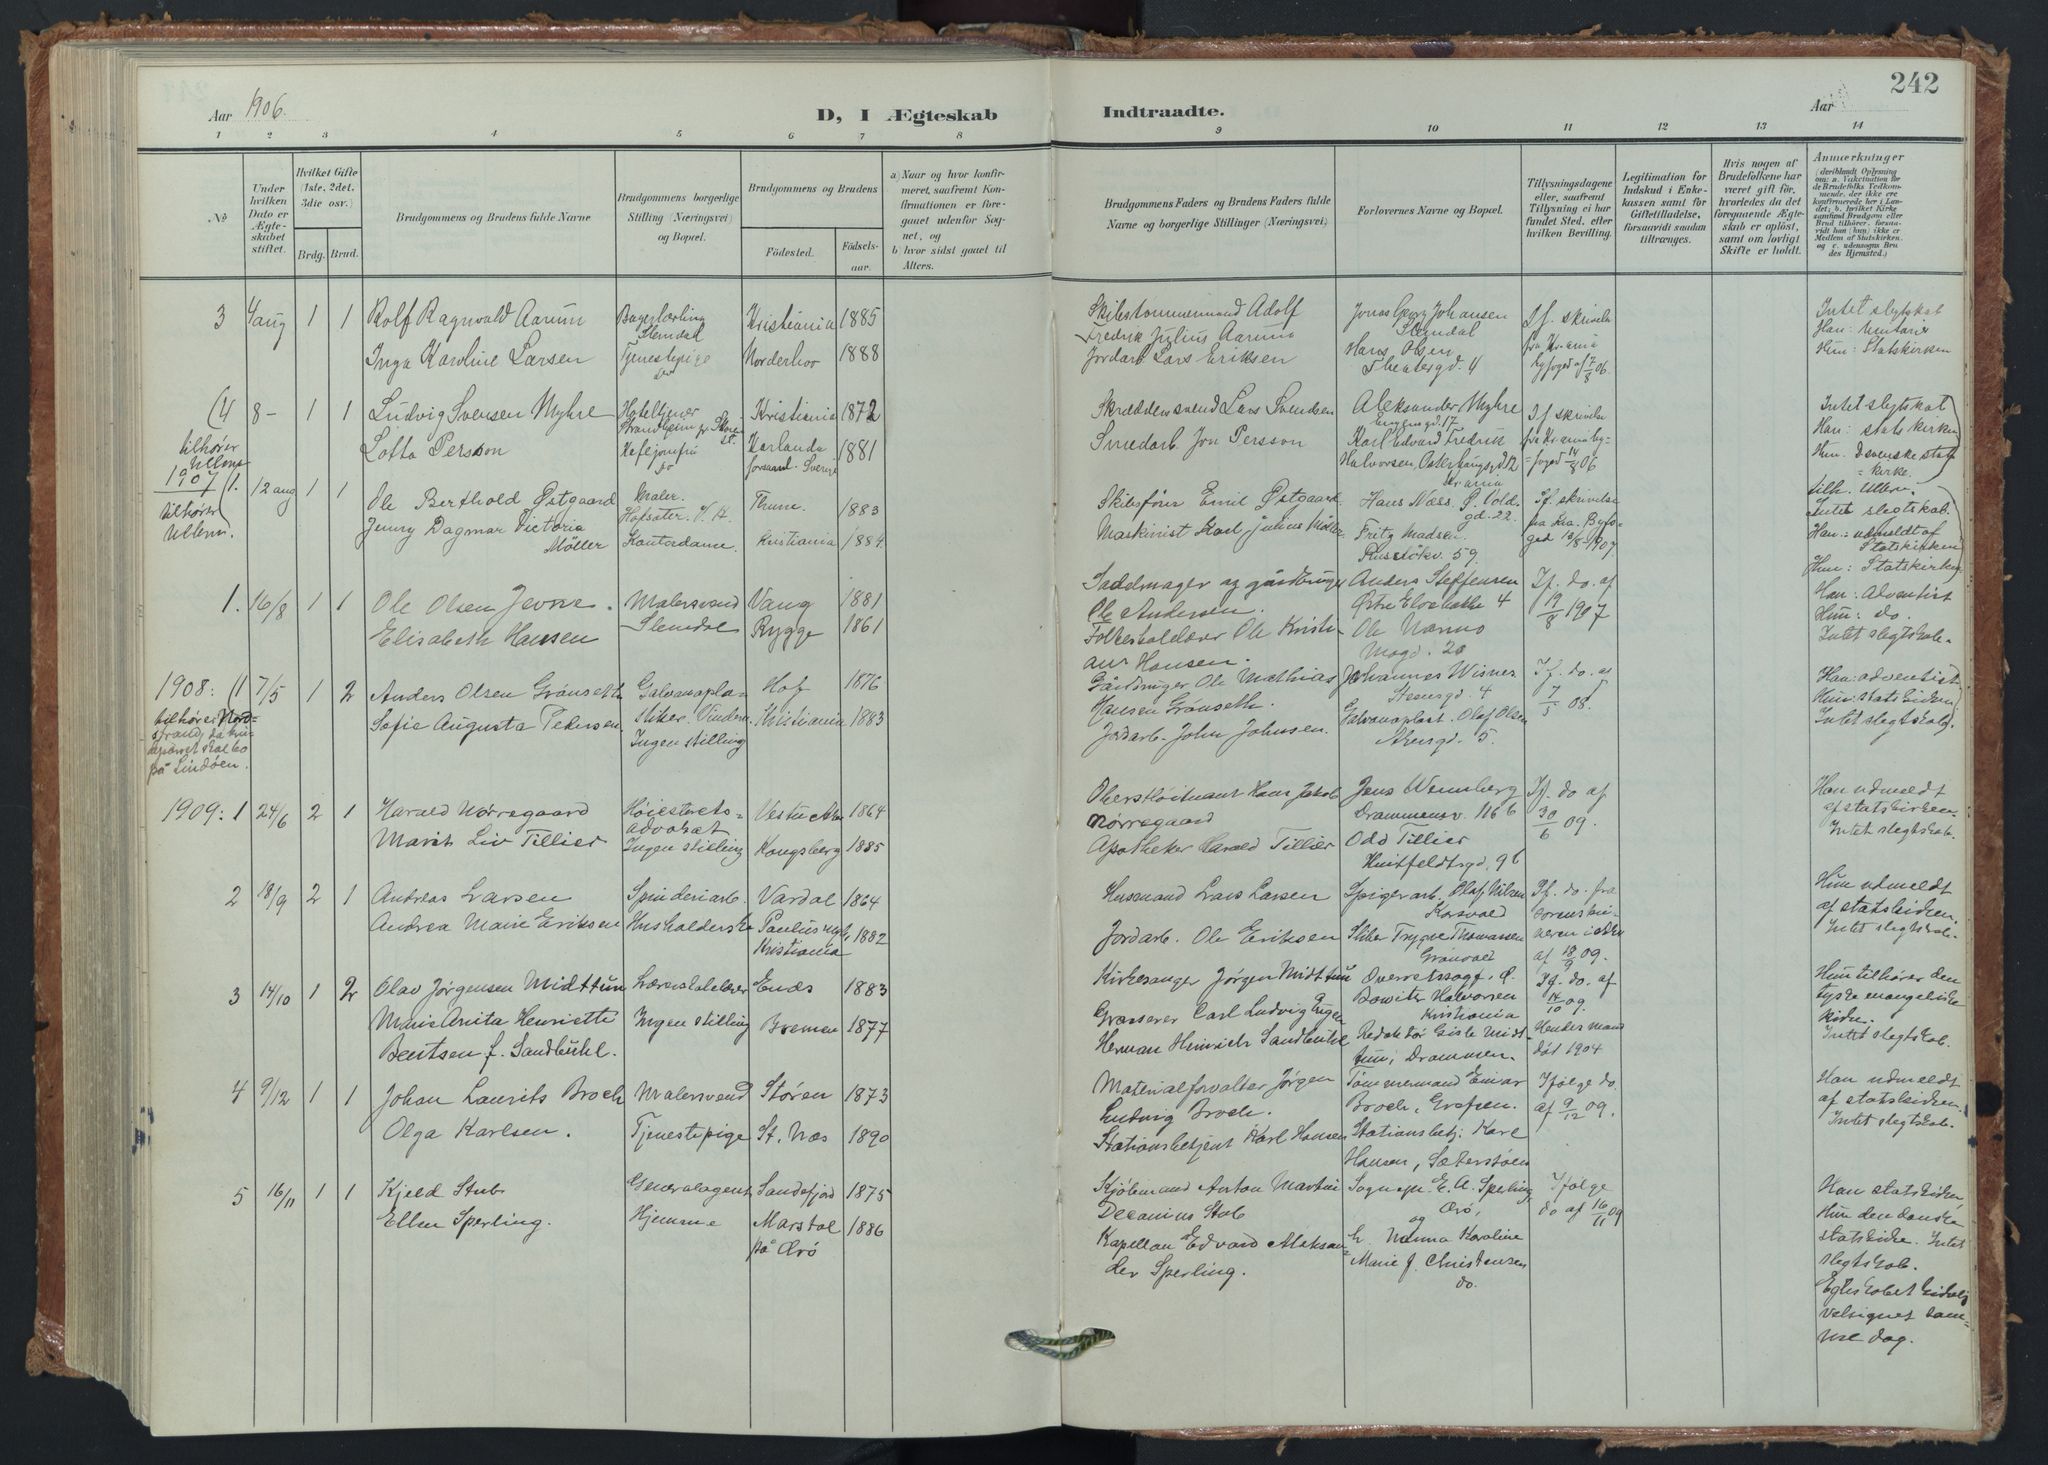 242
Aar 1906.
D, I Ægteskab
Indtraadte.
Aar
1 2 3 4 5 6 7 8
9 10 11 12 13 14
No
Under hvilken Dato er Ægteskabet stiftet.
Hvilket Gifte (1ste, 2det, 3die osv.)
Brdg. Brud.
Brudgommens og Brudens fulde Navne
Brudgommens borgerlige Stilling (Næringsvei) og Bopæl.
Brudgommens og Brudens
Fødested.
Fødselsaar.
a) Naar og hvor konfirmeret, saafremt Konfirmationen er foregaaet udenfor Sognet, og
b) hvor sidst gaaet til Alters.
Brudgommens Faders og Brudens Faders fulde Navne og borgerlige Stillinger (Næringsvei)
Forlovernes Navne og Bopæl.
Tillysningsdagene eller, saafremt Tillysning ei har fundet Sted, efter hvilken Bevilling.
Legitimation for Indskud i Enkekassen samt for Giftetilladelse, forsaavidt saadan tiltrænges.
Hvis nogen af Brudefolkene har været gift før, hvorledes da det foregaaende Ægteskab er opløst, samt om lovligt Skifte er holdt.
Anmerkninger
(deriblandt Oplysning om: a. Vakcination for de Brudefolks Vedkommende, der ikke ere konfirmerede her i Landet; b. hvilket Kirkesamfund Brudgom eller Brud tilhører, forsaavidt han (hun) ikke er Medlem af Statskirken, og c. udensogns Brudes Hjemsted.)
3 4 aug 1 1 Rolf Ragnvald Aarum
Slemdal
Kristiania 1885
Inga Karoline Larsen Tjenestepige
do
Norderhov 1888
Adolf
Fredrik Julius Aarum
Jordarb. Lars Eriksen
Jonas Georg Johansen
Slemdal
Hans Olsen
Theatergd. 4
If. skrivelse
fra Kr.ania
byfoged af 7/8 06.
Intet slegtskab
Han: Unitarier
Hun: Statskirken
(4 8 - 1 1 Ludvig Svensen Myhre
Kristiania 1872
Lotta Persson
Kafejomfru
do
1881
Skræddersvend Lars Svendsen
Smedarb Jon Persson
Aleksander Myhre
17
Karl Edvard Fredrik
Halvorsen,
Kr.ania
If. skrivelse
fra Kr.ania by-
foged 14/8 06
Intet slegtskab
Han: statskirken
Hun. d svenske stats
= kirke.
tilh. Ullern.
tilhører
Ullern
1907 (1. 12 aug 1 1 Ole Berthold Østgaard
Maler.
1883
Jenny Dagmar Victoria
Möller
Kontordame.
Kristiania 1884.
tilhører
Ullern.
Skibsfører Emil Østgaard
Maskinist Karl Julius Möller
Hans Næss
gd. 22.
Fritz Madsen.
Ruseløkv. 59.
If. skrivelse
fra Kra. Byfo-
ged 13/8-1907.
Intet slegtskab.
Han: udmeldt af
Statskirken
Hun: Statskirken
1. 16/8 1 1 Ole Olsen Jevne. Malersvend Vang 1881
Elisabeth Hansen Slemdal Rygge 1861
Sadelmager og gårdbruger
Ole Andersen.
Ole Kristi-
an Hansen.
Anders Steffensen
Østre Elvebakke 4
Ole
If. do. af
19/8 1907
Han: Adventist
Hun: do.
Intet slegtskab.
1908: (1 7/5 1 2 Anders Olsen Grønseth Galvanopla-
stiker. Vindern.
Hof 1876
Sofie Augusta Pedersen. Ingen stilling Kristiania 1883
tilhører Nord-
strand, da
skal bo
på Lindøen.
Gårdbruger Ole Mathias
Hansen Grønseth.
Jordarb. John Johnsen.
Johannes
Steensgd. 4
Galvanoplast. Olaf Olsen
Akersgd. 5.
If. do. af
7/5 08.
Han: adventist.
Hun: statskirken
Intet slegtskab.
1909: 1 24/6 2 1 Harald Nørregaard Høiesterets-
advokat
1864
Marit Liv Tillier Ingen stilling Kongsberg 1885
Oberstløitnant Hans Jakob
Nørregaard
Apotheker Harald Tillier
Jens Wennberg
Drammensv. 116 b
Odd Tillier
Huitfeldtsgd. 9 b
If. do af
30/6 09.
Han udmeldt
af statskirken.
Intet slegtskab.
2 18/9 2 1 Andreas Larsen Spinderiarb. Vardal 1864
Andrea Marie Eriksen Husholderske Paulus mgh.
Kristiania
1882
Husmand Lars Larsen
Jordarb. Ole Eriksen
Spigerarb. Olaf Nilsen
Korsvold
Trygve Thomassen
Granvold
If. do. fra
sorenskri-
veren i Aker
af 18/9 09.
Hun udmeldt
af statskirken.
Intet slegtskab.
3 14/10 1 2 Olav Jørgensen Midttun Lærerskolelærer 1883
Marie Anita Henriette
Bentsen f. Sandbuhl.
Ingen stilling Bremen 1877
Kirkesanger Jørgen Midttun
Carl Ludvig Eugen
Herman Heinrich Sandbuhl
Overretssagf. O.
Halvorsen
Kristiania
Redaktør Gisle Midt-
tun, Drammen.
If. do. af
14/10 09.
Hendes mand
død 1904
Hun tilhører den
tyske evangeliske
kirke.
Intet slegtskab.
4 9/12 1 1 Johan Laurits Broch Malersvend Støren 1873
Olga Karlsen. Tjenestepige St. Næs 1890
Materialforvalter Jørgen
Ludvig Broch.
Stationsbetjent Karl Hansen
Tømmermand Einar
Broch, Grefsen.
Stationsbetj. Karl
Hansen, Sæterstøen
Ifølge do.
af 9/12 09.
Han udmeldt
af statskirken.
Intet slegtskab.
5 16/11 1 1 Kjeld Stub Generalagent Sandefjord 1875
Ellen Sperling. Hjemme Marstal
på Ærø
1886
Kjøbmand Anton Martin
Decanius Stub
Kapellan Edvard Aleksan-
der Sperling.
Sognepr. E. A. Sperling,
Ærø,
og
fr. Nanna Karoline
Marie J. Christensen
do.
Ifølge
do af 16/11 09
Han statskirken
Hun den danske
statskirke. Intet
slegtskab.
Egteskabet kirkelig
velsignet sam-
me dag.